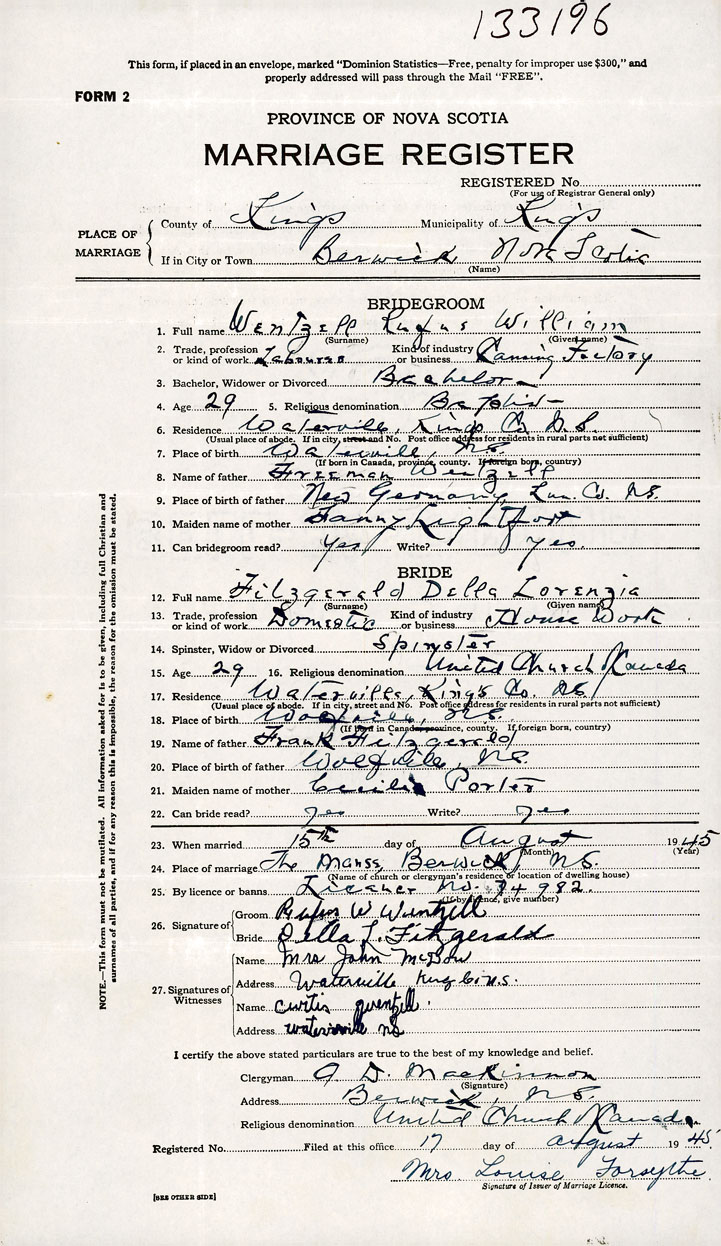 133196
This form, if placed in an envelope, marked "Dominion Statistics—Free, penalty for improper use $300," and
properly addressed will pass through the Mail "FREE".
FORM 2
PROVINCE OF NOVA SCOTIA
MARRIAGE REGISTER
REGISTERED No.
(For use of Registrar General only)
PLACE OF MARRIAGE
County of Kings Municipality of Kings
If in City or Town Berwick Nova Scotia
(Name)
BRIDEGROOM
1. Full name Wentzell Rufus William
(Surname) (Given name)
2. Trade, profession or kind of work Labourer Kind of industry or business Canning Factory
3. Bachelor, Widower or Divorced Bachelor
4. Age 29 5. Religious denomination Baptist
6. Residence Waterville, Kings Co. N.S.
(Usual place of abode. If in city, street and No. Post office address for residents in rural parts not sufficient)
7. Place of birth Waterville, N.S.
(If born in Canada, province, county. If foreign born, country)
8. Name of father Freeman Wentzell
9. Place of birth of father New Germany Lun. Co. N.S.
10. Maiden name of mother Fanny Lightfoot
11. Can bridegroom read? Yes Write? Yes.
BRIDE
12. Full name Fitzgerald Della Lorenzia
(Surname) (Given name)
13. Trade, profession or kind of work Domestic Kind of industry or business House Work
14. Spinster, Widow or Divorced Spinster
15. Age 29 16. Religious denomination United Church Canada
17. Residence Waterville, Kings Co. N.S.
(Usual place of abode. If in city, street and No. Post office address for residents in rural parts not sufficient)
18. Place of birth N.S.
(If born in Canada, province, county. If foreign born, country)
19. Name of father Frank Fitzgerald
20. Place of birth of father Wolfville, N.S.
21. Maiden name of mother Cecilia Porter
22. Can bride read? yes Write? yes
23. When married 15th day of August 1945
(Month) (Year)
24. Place of marriage The Manse, Berwick, N.S.
(Name of church or clergyman's residence or location of dwelling house)
25. By licence or banns License No. 74982.
(If by licence, give number)
26. Signature of
Groom Rufus W Wentzell
Bride Della L. Fitzgerald
27. Signatures of Witnesses
Name Mrs John McGow
Address Waterville Kings Co N.S.
Name curtis wentzell
Address waterville ns
I certify the above stated particulars are true to the best of my knowledge and belief.
Clergyman A D. MacKinnon
(Signature)
Address Berwick, N.S.
Religious denomination United Church Canada
Registered No. Filed at this office 17 day of august 1945
Mrs. Louise Forsythe
Signature of Issuer of Marriage Licence.
[SEE OTHER SIDE]
NOTE.—This form must not be mutilated. All information asked for is to be given, including full Christian and
surnames of all parties, and if for any reason this is impossible, the reason for the omission must be stated.